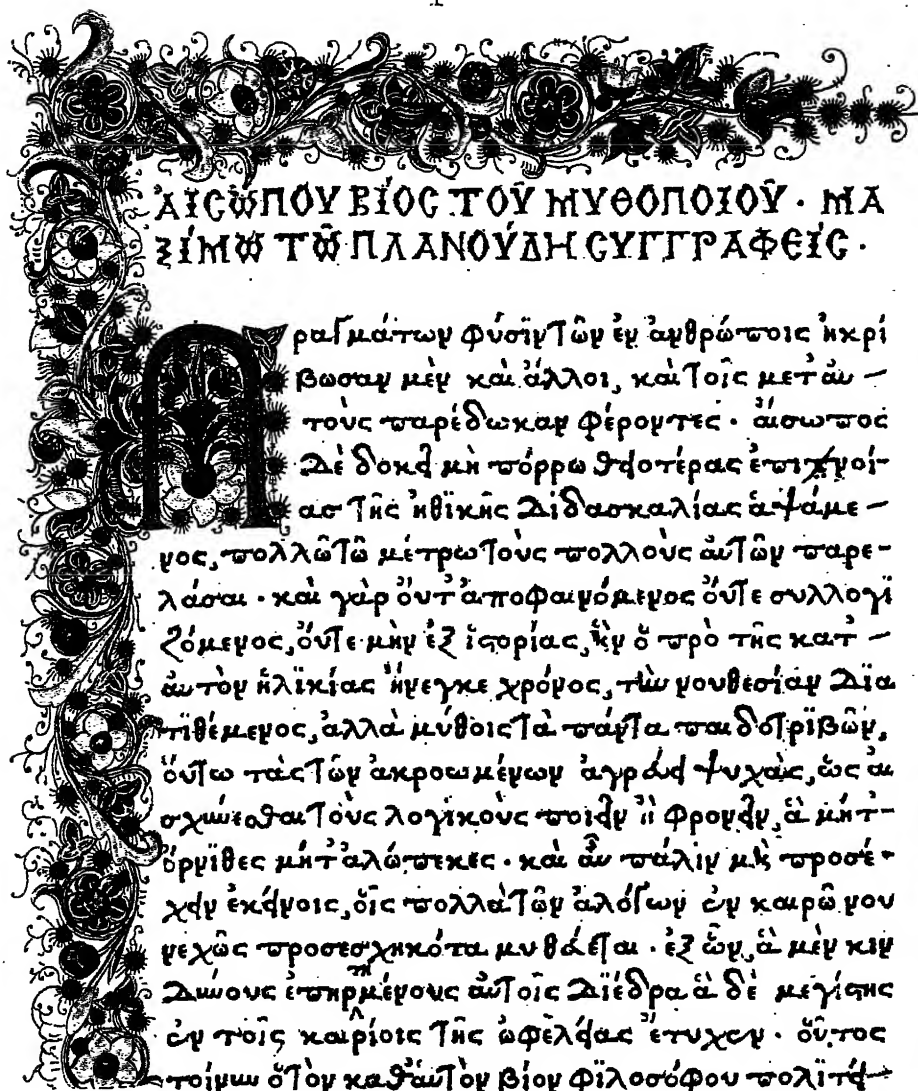 ἈΙΣΏΠΟΥ ΒΊΟΣ ΤΟΥ͂ ΜΥΘΟΠΟΙΟΥ͂ · ΜΑ
ΞΊΜΩ ΤΩ͂ ΠΛΑΝΟΎΔΗ ΣΥΓΓΡΑΦΕΊΣ ·
Πραγμάτων φύσιν τῶν ἐν ἀνθρώποις ἠκρί
βωσαν μὲν καὶ ἄλλοι, καὶ τοῖς μετ' ἀυ-
τοὺς παρέδωκαν φέροντες · ἄισωπος
δὲ δοκεῖ μὴ πόρρω θειοτέρας ἐπιπνοί-
ας τῆς ἠθϊκῆς διδασκαλίας ἁψάμε-
νος, πολλῶ τῶ μέτρω τοὺς πολλοὺς ἀυτῶν παρε-
λάσαι · καὶ γὰρ ὄυτ' ἀποφαινόμενος ὄυτε συλλογϊ
ζόμενος, ὄυτε μὴν ἐξ ἱστορίας, ἣν ὁ πρὸ τῆς κατ'-
ἀυτὸν ἡλϊκίας ἤνεγκε χρόνος, τὴν νουθεσίαν δϊα
τϊθέμενος, ἀλλὰ μύθοις τὰ πάντα παιδοτρϊβῶν,
ὅυτω τὰς τῶν ἀκροωμένων ἀγρεύει ψυχὰς, ὡς ἀι
σχύνεσθαι τοὺς λογικοὺς ποιεῖν ἢ φρονεῖν, ἃ μήτ'-
ὄρνϊθες μήτ' ἀλώπεκες · καὶ ἆυ πάλϊν μὴ προσέ-
χειν ἐκείνοις, ὅις πολλὰ τῶν ἀλόγων ἐν καιρῶ νου
νεχῶς προσεσχηκότα μυθεύεται · ἐξ ὧν, ἃ μὲν κιν
δύνους ἐπηρτημένους ἀυτοῖς δϊέδρα ἃ δὲ μεγίστης
ἐν τοῖς καιρίοις τῆς ὠφελείας ἔτυχεν · ὅυτος
τοίνυν ὁ τὸν καθ' ἁυτὸν βίον φϊλοσόφου πολϊτεί-